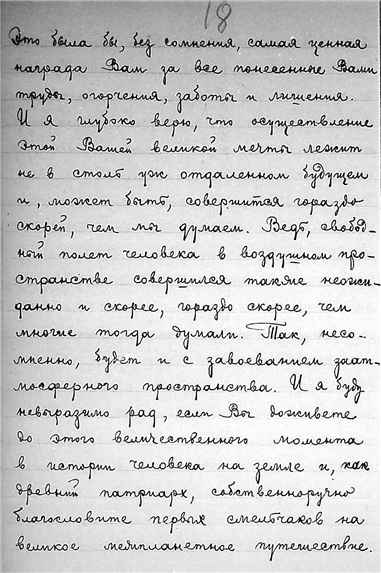 18
Это была бы, без сомнения, самая ценная
награда Вам за все понесенные Вами
труды, огорчения, заботы и лишения.
И я глубоко верю, что осуществление
этой Вашей великой мечты лежит
не в столь уж отдаленном будущем
и, может быть, совершится гораздо
скорей, чем мы думаем. Ведь, свобод-
ный полет человека в воздушном про-
странстве совершился также неожи-
данно и скорее, гораздо скорее, чем
многие тогда думали. Так, несо-
мненно, будет и с завоеванием заат-
мосферного пространства. И я буду
невыразимо рад, если Вы доживете
до этого величественного момента
в истории человека на земле и, как
древний патриарх, собственноручно
благословите первых смельчаков на
великое межпланетное путешествие.